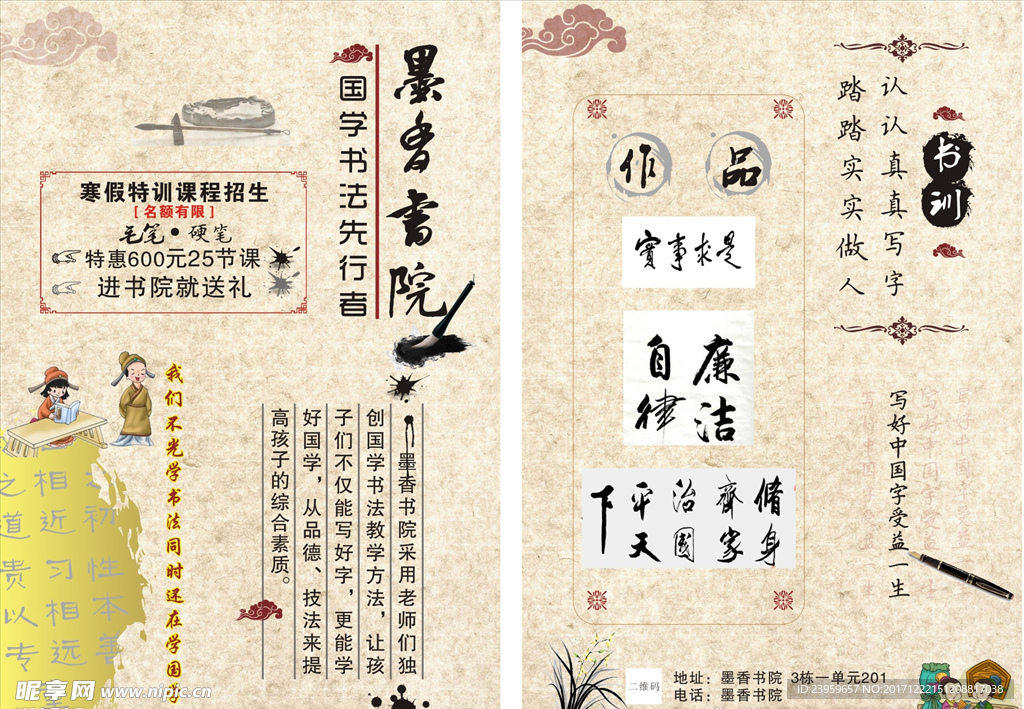 墨香书院
国学书法先行者
寒假特训课程招生
[名额有限]
毛笔●硬笔
特惠600元25节课
进书院就送礼
我们不光学书法同时还在学国学
墨香书院采用老师们独
创国学书法教学方法，让孩
子们不仅能写好字，更能学
好国学，从品德、技法来提
高孩子的综合素质。
初性本善
相近习相远
之道贵以专
昵享网 www.nipic.cn
书训
认认真真写字
踏踏实实做人
作品
實事求是
廉洁
自律
脩身
齊家
治國
平天
下
写好中国字受益一生
二维码
地址：墨香书院 3栋一单元201
电话：墨香书院
ID:23959657 NO:20171222151208817038